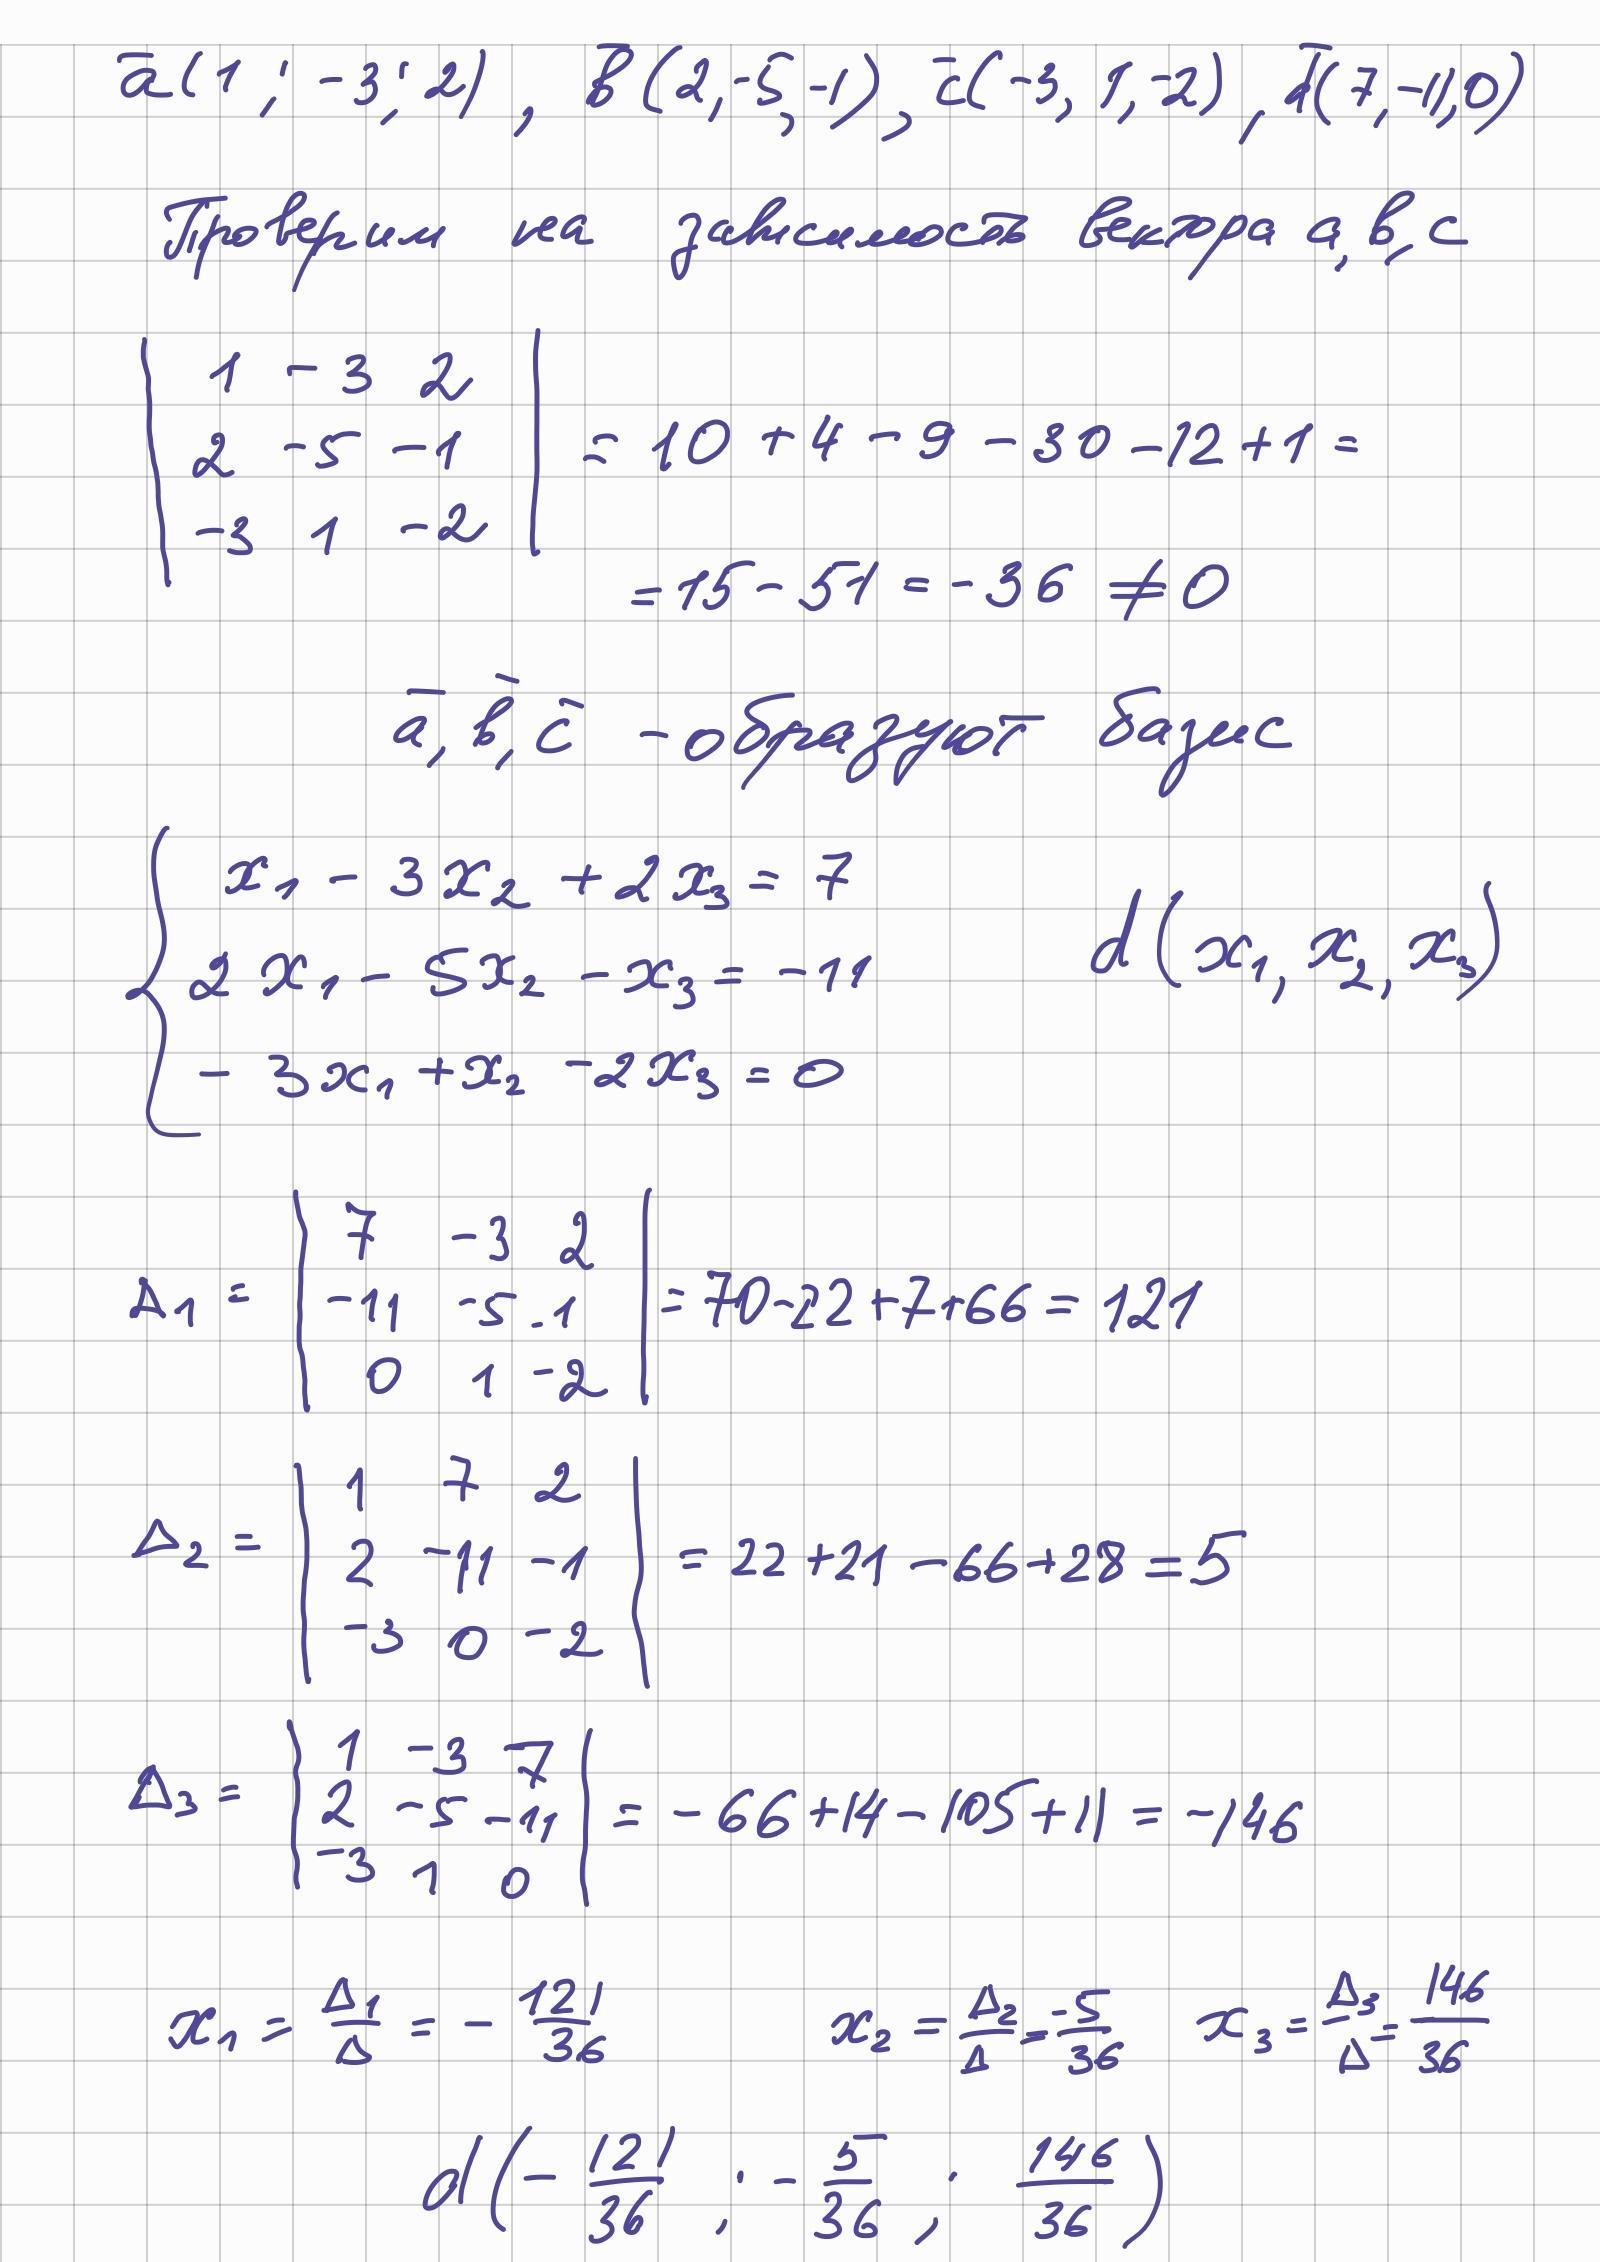 a̅(1 ; -3 ; 2) , b̅(2,-5,-1), c̅(-3, 1, -2), d̅(7,-11,0)
Проверим на зависимость вектора a, b, c
| 1 -3 2 |
| 2 -5 -1 | = 10 + 4 - 9 - 30 - 12 + 1 =
| -3 1 -2 |
= 15 - 51 = -36 ≠ 0
a̅, b̅, c̅ - образуют базис
{ x₁ - 3x₂ + 2x₃ = 7
2x₁ - 5x₂ - x₃ = -11 d(x₁, x₂, x₃)
- 3x₁ + x₂ - 2x₃ = 0
| 7 -3 2 |
Δ₁ = | -11 -5 -1 | = 70-22+7+66 = 121
| 0 1 -2 |
| 1 7 2 |
Δ₂ = | 2 -11 -1 | = 22+21-66+28 = 5
| -3 0 -2 |
| 1 -3 7 |
Δ₃ = | 2 -5 -11 | = -66+14-105+11 = -146
| -3 1 0 |
x₁ = Δ₁/Δ = - 121/36 x₂ = Δ₂/Δ = -5/36 x₃ = Δ₃/Δ = 146/36
d(- 121/36 ; - 5/36 ; 146/36)